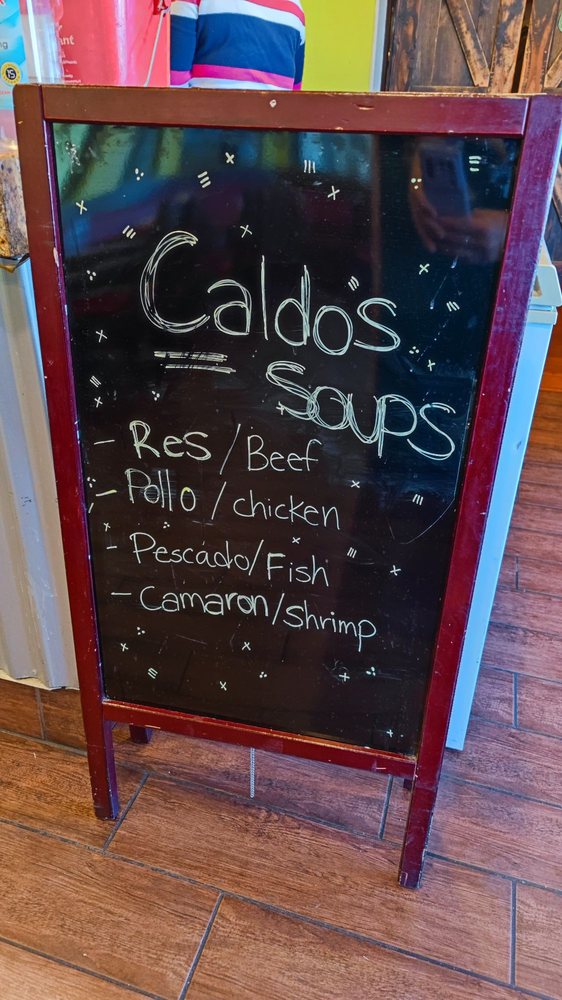 ant
15
Caldo's
Soups
- Res / Beef
- Pollo / chicken
- Pescado/Fish
- Camaron/shrimp